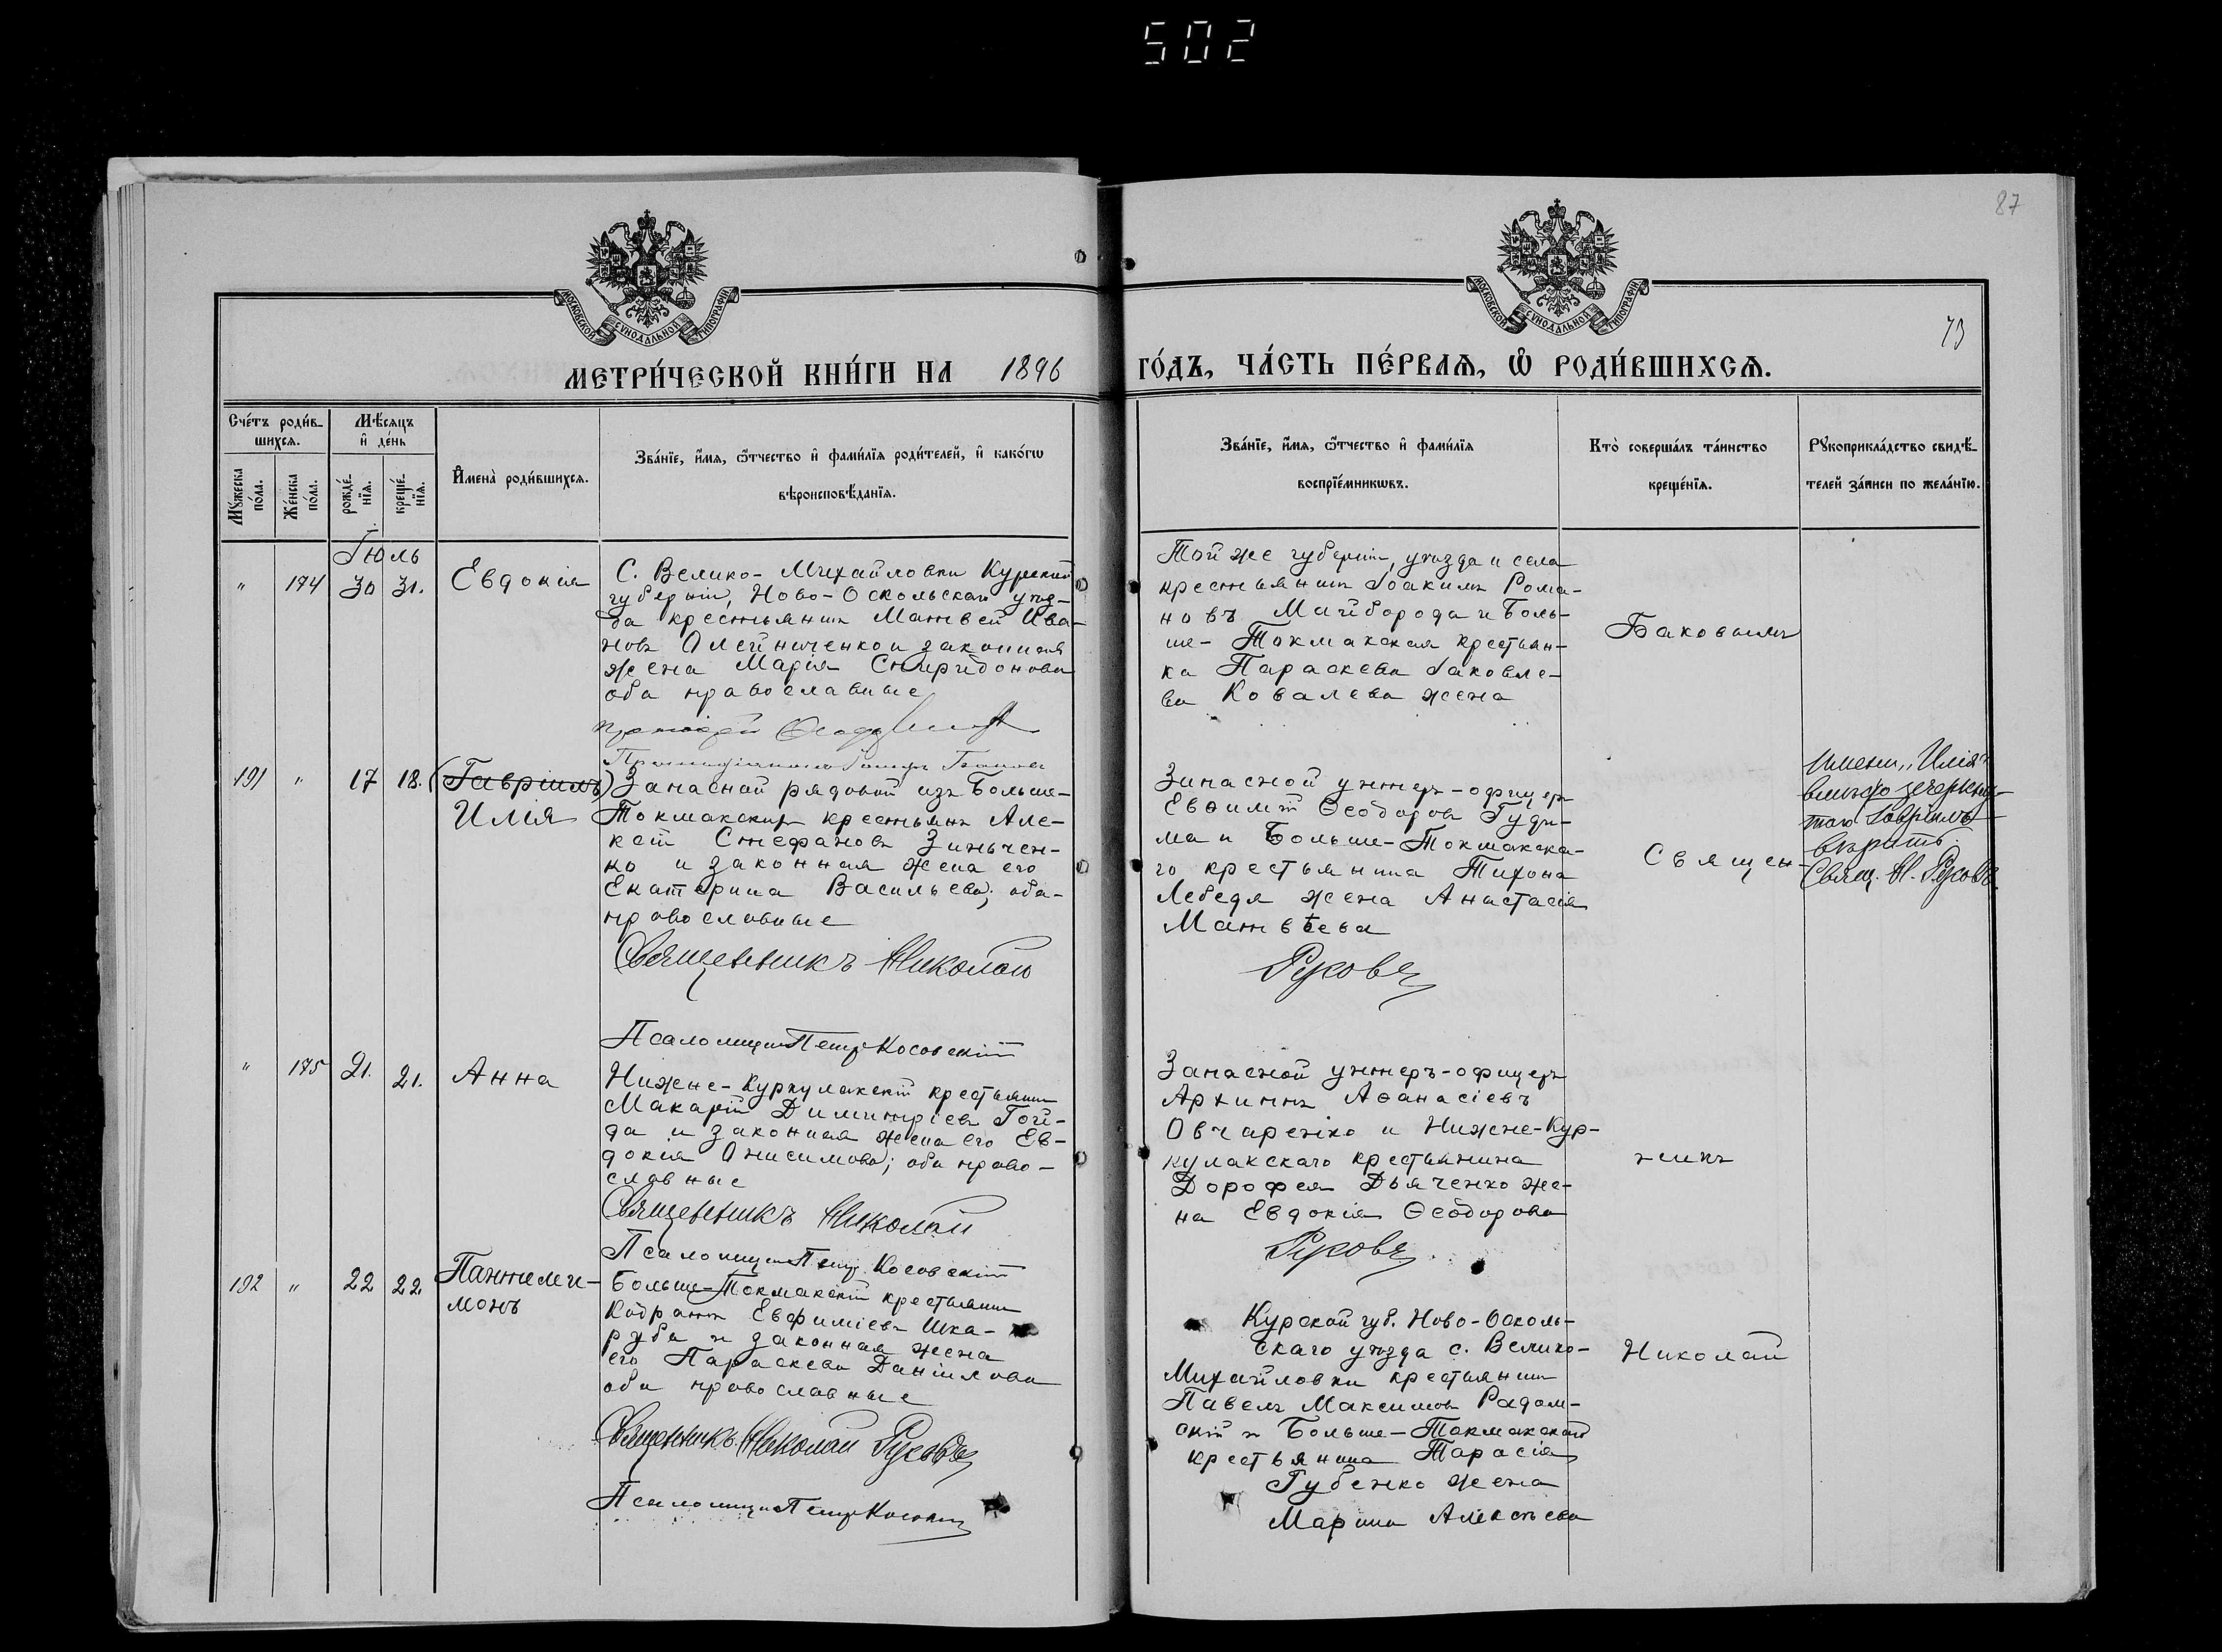 502
87
73
МОСКОВСКОЙ СѴНОДАЛЬНОЙ ТИПОГРАФІИ
МОСКОВСКОЙ СѴНОДАЛЬНОЙ ТИПОГРАФІИ
МЕТРИ́ЧЕСКОЙ КНИ́ГИ НА 1896 ГО́ДЪ, ЧА́СТЬ ПЕ́РВАѦ, Ѽ РОДИ́ВШИХСѦ.
Сче́тъ роди́в-
шихсѧ.
Мꙋ́жеска
по́ла.
Же́нска
по́ла.
Мѣ́сяцъ
и҆ де́нь
рожде́-
нїѧ.
креще́-
нїѧ.
И҆мена̀ роди́вшихсѧ.
Зва́нїе, и҆́мѧ, ѻ҆́тчество и҆ фами́лїѧ роди́телей, и҆ како́гѡ
вѣроисповѣ́данїѧ.
Зва́нїе, и҆́мѧ, ѻ҆́тчество и҆ фами́лїѧ
воспрїе́мникѡвъ.
Кто̀ соверша́лъ та́инство
креще́нїѧ.
Рꙋкоприкла́дство свидѣ́-
телей за́писи по жела́нїю.
Іюль
" 174 30 31. Евдокія
С. Велико-Михайловки Курской
губерніи, Ново-Оскольскаго уѣз-
да крестьянинъ Матвей Ива-
новъ Олейниченко и законная
жена Марія Спиридонова
оба православные
Той же губерніи, уѣзда и села
крестьянинъ Іоакимъ Рома-
новъ Майборода и Боль-
ше-Токмакская крестьян-
ка Параскева Іаковле-
ва Ковалева жена
191 " 17 18. (Гавріилъ)
Илія
Запасной рядовой изъ Больше-
Токмакскихъ крестьянъ Але-
ксѣй Стефановъ Зинчен-
ко и законная жена его
Екатерина Васильева; оба
православные
Священникъ Николай
Запасной унтеръ-офицеръ
Евѳимій Ѳеодоровъ Гуди-
ма и Больше-Токмакска-
го крестьянина Тихона
Лебедя жена Анастасія
Матвѣева
Русовъ
Священ-
имени „Илія“
вмѣсто зачеркну-
таго Гавріилъ
вѣрить
Свящ. Н. Русовъ.
Псаломщикъ Петръ Косовскій
" 175 21. 21. Анна
Нижне-Куркулакскій крестьянинъ
Макарій Димитріевъ Гой-
да и законная жена его Ев-
докія Онисимова; оба право-
славные
Священникъ Николай
Запасной унтеръ-офицеръ
Архиппъ Аѳанасіевъ
Овчаренко и Нижне-Кур-
кулакскаго крестьянина
Дорофея Дьяченко же-
на Евдокія Ѳеодорова
Русовъ
никъ
Псаломщикъ Петръ Косовскій
192 " 22 22 Пантелеи-
монъ
Больше-Токмакскій крестьянинъ
Кодратъ Евфиміевъ Шка-
руба и законная жена
его Параскева Даніилова
оба православные
Священникъ Николай Русовъ
Псаломщикъ Петръ Косовскій
Курской губ. Ново-Осколь-
скаго уѣзда с. Велико-
Михайловки крестьянинъ
Павелъ Максимовъ Радом-
скій и Больше-Токмакскаго
крестьянина Тарасія
Губенко жена
Марина Алексѣева
Николай